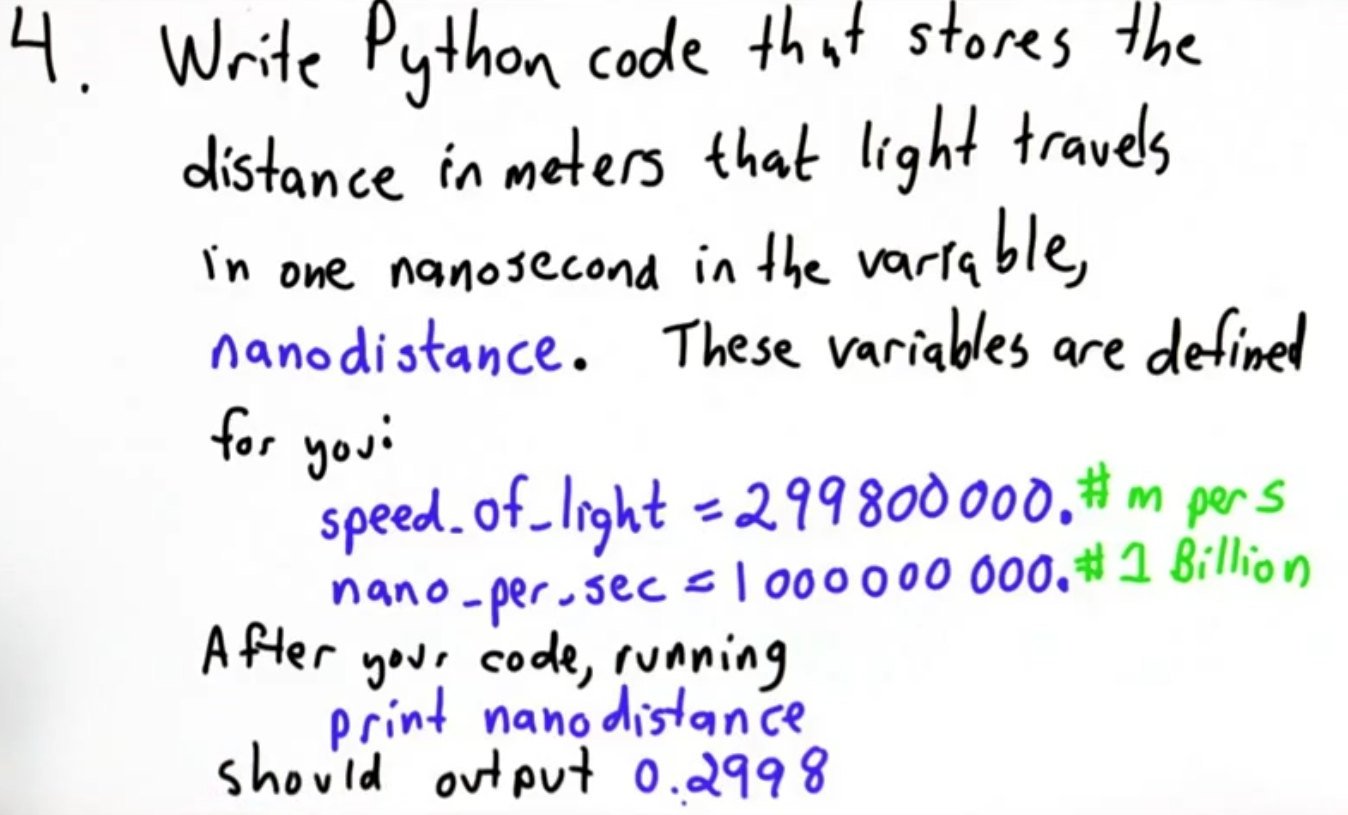 4. Write Python code that stores the
distance in meters that light travels
in one nanosecond in the variable,
nanodistance. These variables are defined
for you:
speed_of_light = 299800000. # m per s
nano_per_sec = 1000000000. # 1 Billion
After your code, running
print nanodistance
should output 0.2998